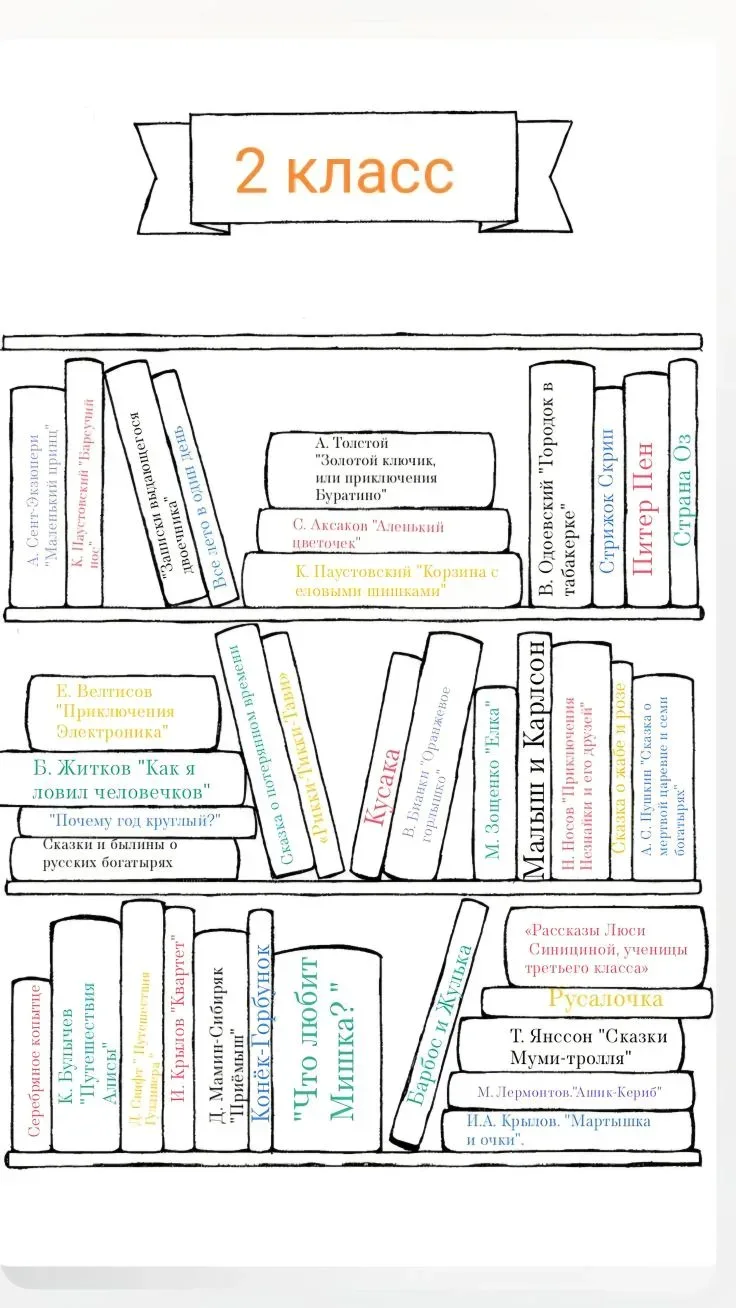 2 класс
А. Сент-Экзюпери
"Маленький принц"
К. Паустовский "Барсучий
нос"
"Записки выдающегося
двоечника"
Все лето в один день
А. Толстой
"Золотой ключик,
или приключения
Буратино"
С. Аксаков "Аленький
цветочек"
К. Паустовский "Корзина с
еловыми шишками"
В. Одоевский "Городок в
табакерке"
Стрижок Скрип
Питер Пен
Страна Оз
Е. Велтисов
"Приключения
Электроника"
Б. Житков "Как я
ловил человечков"
"Почему год круглый?"
Сказки и былины о
русских богатырях
Сказка о потерянном времени
«Рикки-Тикки-Тави»
Кусака
В. Бианки "Оранжевое
горлышко"
М. Зощенко "Елка"
Малыш и Карлсон
Н. Носов "Приключения
Незнайки и его друзей"
Сказка о жабе и розе
А. С. Пушкин "Сказка о
мертвой царевне и семи
богатырях"
Серебряное копытце
К. Булычев
"Путешествия
Алисы"
Д. Свифт " Путешествия
Гулливера "
И. Крылов "Квартет"
Д. Мамин-Сибиряк
"Приёмыш"
Конёк-Горбунок
"Что любит
Мишка? "
Барбос и Жулька
«Рассказы Люси
Синициной, ученицы
третьего класса»
Русалочка
Т. Янссон "Сказки
Муми-тролля"
М. Лермонтов."Ашик-Кериб"
И.А. Крылов. "Мартышка
и очки".